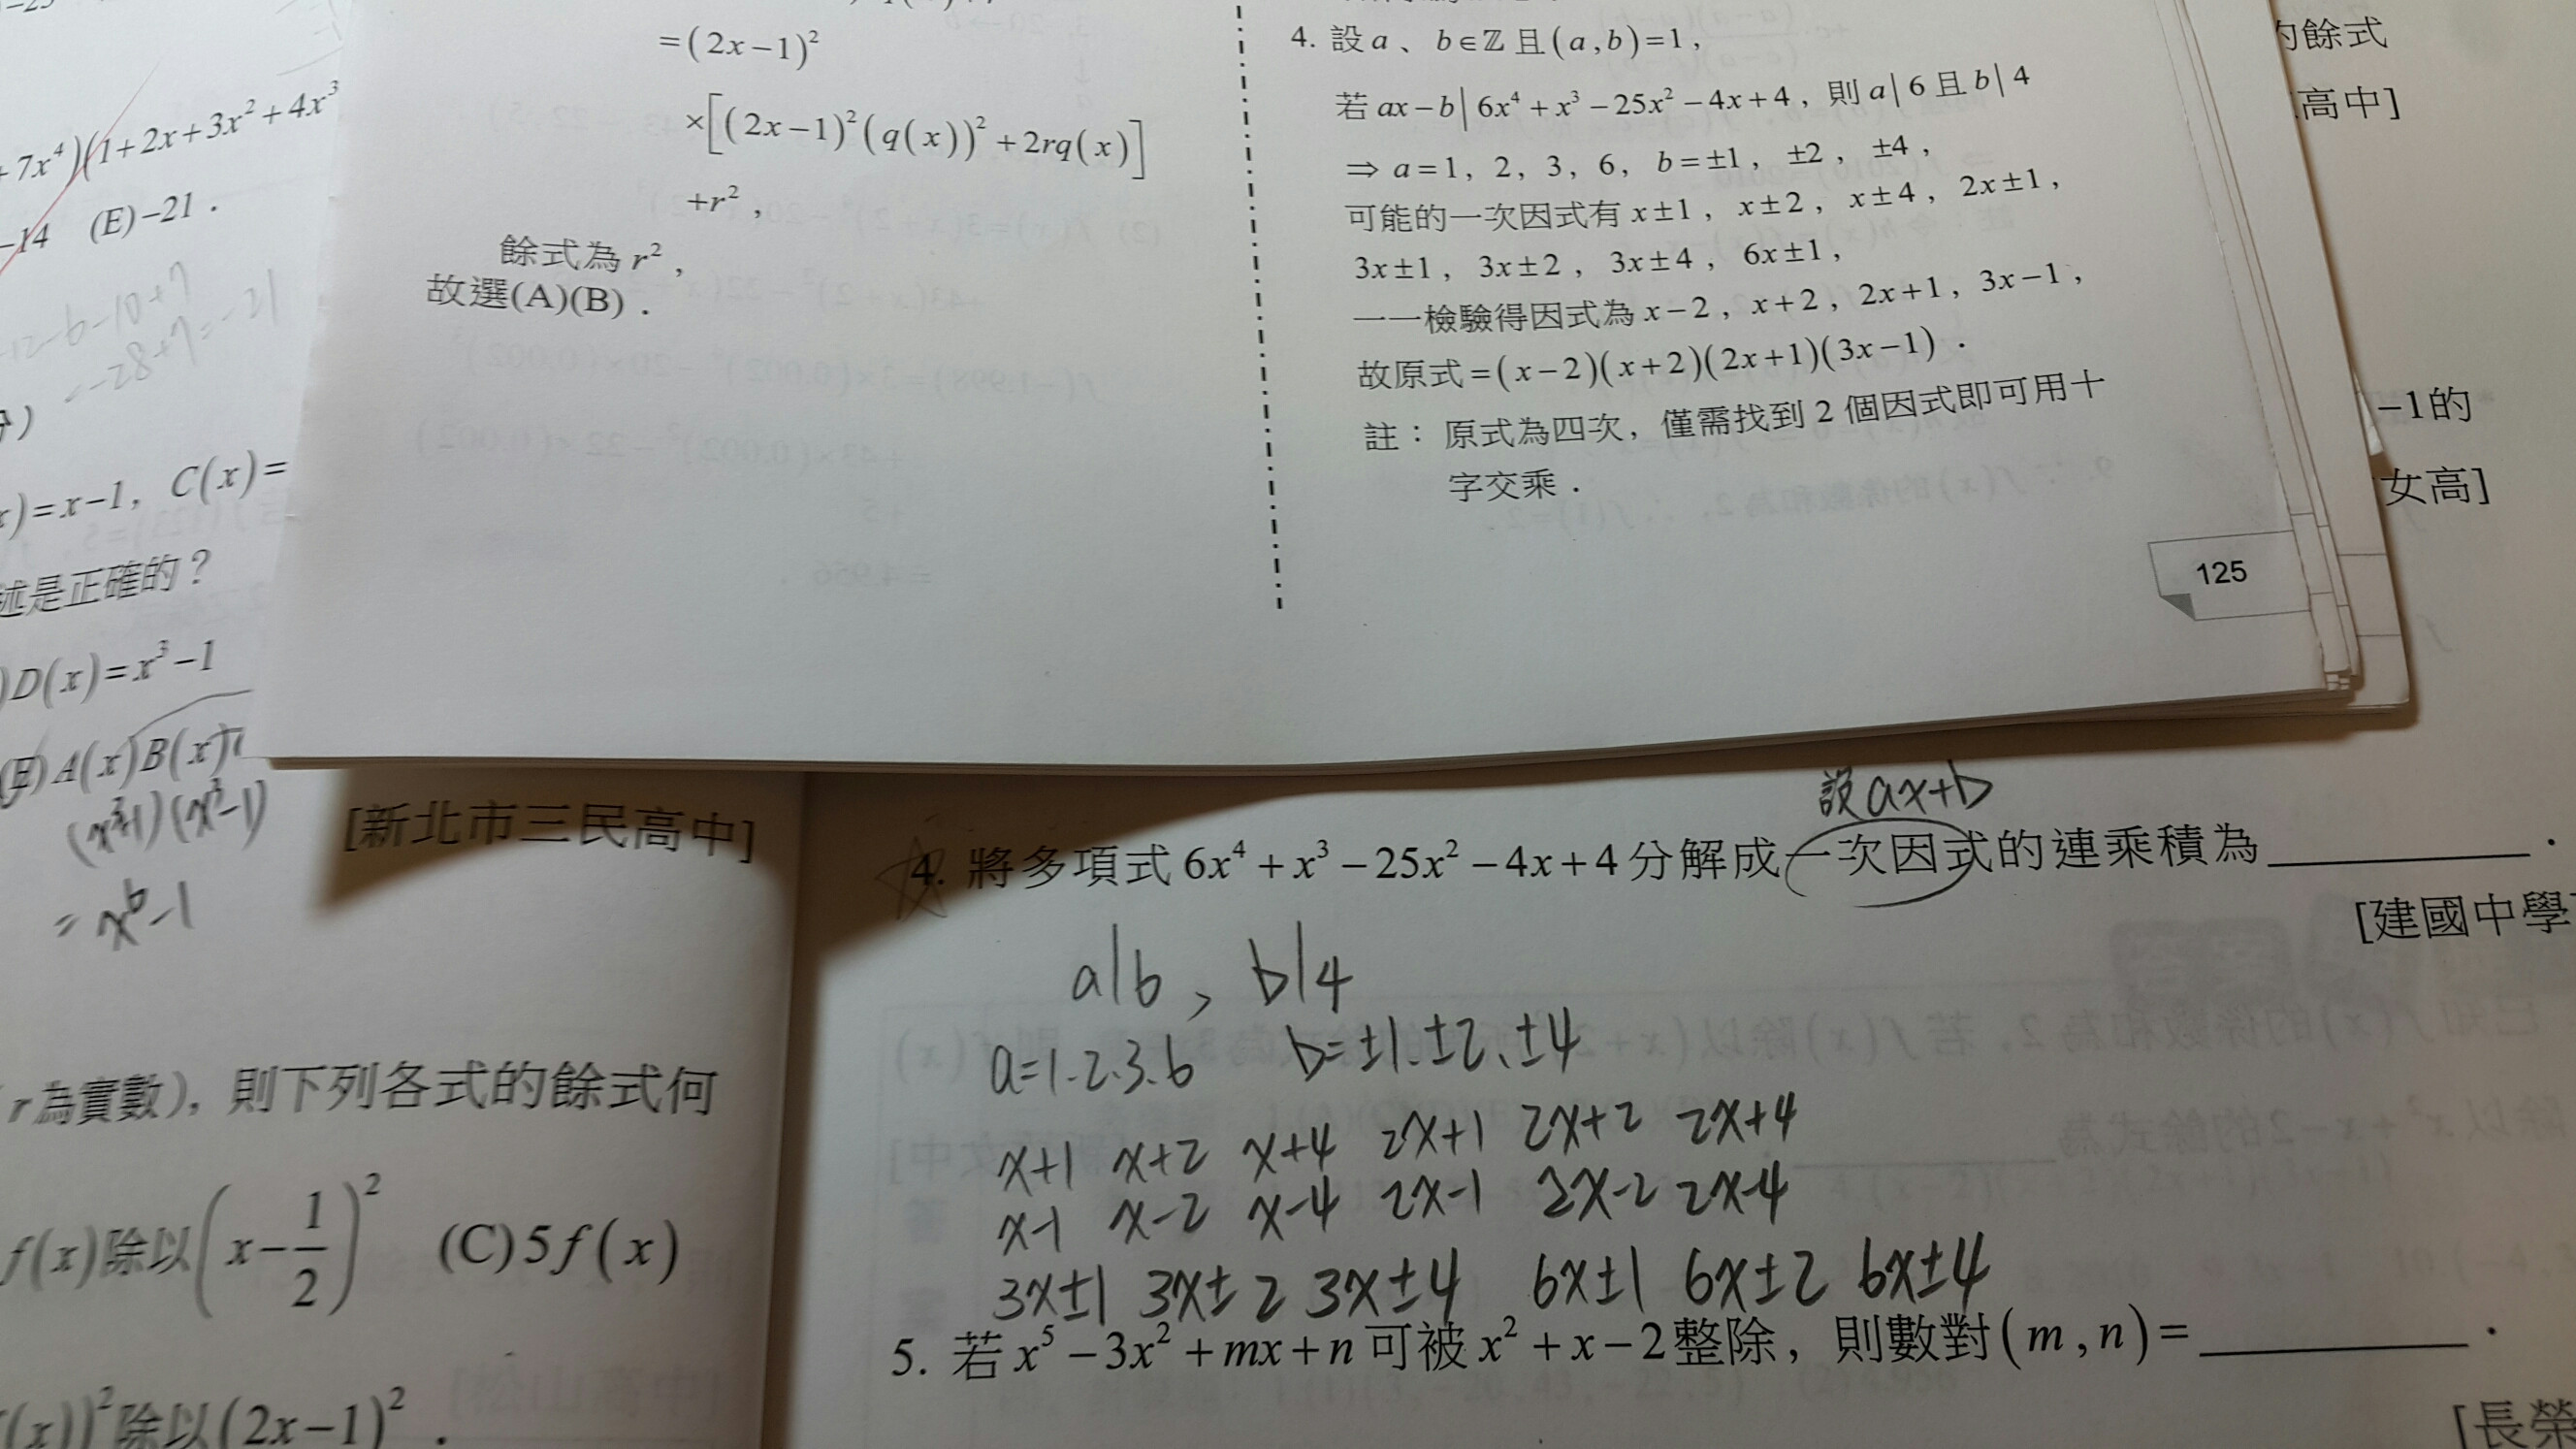 =(2x−1)²
×[(2x−1)²(q(x))²+2rq(x)]
+r²，
餘式為 r²，
故選(A)(B)．
4. 設 a、b∈ℤ 且 (a,b)=1，
若 ax−b|6x⁴+x³−25x²−4x+4，則 a|6 且 b|4
⇒ a=1，2，3，6，b=±1，±2，±4，
可能的一次因式有 x±1，x±2，x±4，2x±1，
3x±1，3x±2，3x±4，6x±1，
一一檢驗得因式為 x−2，x+2，2x+1，3x−1，
故原式=(x−2)(x+2)(2x+1)(3x−1)．
註：原式為四次，僅需找到 2 個因式即可用十
字交乘．
125
的餘式
高中]
−1的
女高]
+7x⁴)(1+2x+3x²+4x³
−14 (E)−21．
−12−6−10+7
=−28+7=−21
x)=x−1，C(x)=
述是正確的？
)D(x)=x³−1
(E)A(x)B(x)
(x³+1)(x³-1)
= x⁶-1
[新北市三民高中]
r為實數)，則下列各式的餘式何
f(x)除以(x−1/2)² (C)5f(x)
(x))²除以(2x−1)²．
設 ax+b
4. 將多項式 6x⁴+x³−25x²−4x+4 分解成一次因式的連乘積為________．
[建國中學
a|6, b|4
a=1.2.3.6 b=±1.±2.±4
x+1 x+2 x+4 2x+1 2x+2 2x+4
x-1 x-2 x-4 2x-1 2x-2 2x-4
3x±1 3x±2 3x±4 6x±1 6x±2 6x±4
5. 若 x⁵−3x²+mx+n 可被 x²+x−2 整除，則數對(m,n)=________．
[長榮